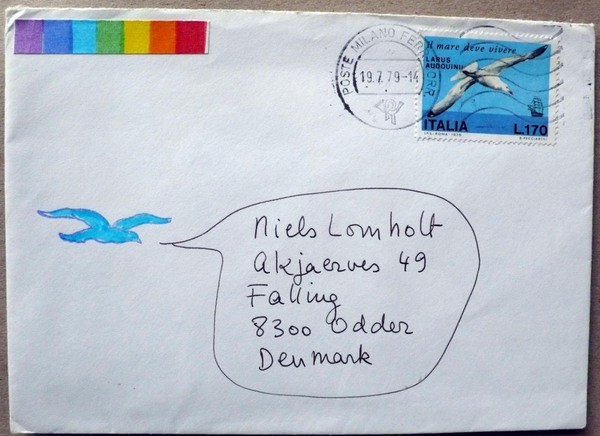 POSTE MILANO FERR. CORR.
19.7.79-14
il mare deve vivere
LARUS
AUDOUINII
ITALIA L.170
Niels Lomholt
Akjaerves 49
Falling
8300 Odder
Denmark